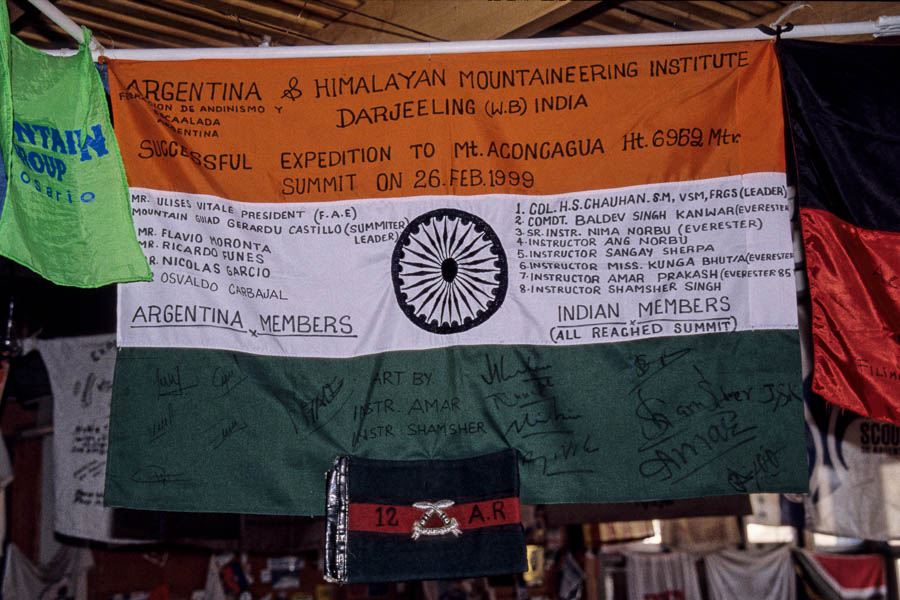 ARGENTINA & HIMALAYAN MOUNTAINEERING INSTITUTE
DE ANDINISMO Y
ARGENTINA
DARJEELING (W.B) INDIA
SUCCESSFUL EXPEDITION TO Mt. ACONCAGUA Ht. 6952 Mtr.
SUMMIT ON 26.FEB.1999
MR. ULISES VITALE PRESIDENT (F.A.E)
MOUNTAIN GUIAD GERARDU CASTILLO (SUMMITER
LEADER)
MR. FLAVIO MORONTA
MR. RICARDO FUNES
MR. NICOLAS GARCIO
OSVALDO CARBAJAL
ARGENTINA MEMBERS
1. COL. H.S. CHAUHAN. S.M, VSM, FRGS (LEADER)
2. COMDT. BALDEV SINGH KANWAR (EVEREST
3. SR. INSTR. NIMA NORBU (EVERESTER)
4. INSTRUCTOR ANG NORBU
5. INSTRUCTOR SANGAY SHERPA
6. INSTRUCTOR MISS. KUNGA BHUTIA (EVERESTER
7. INSTRUCTOR AMAR PRAKASH (EVERESTER 85
8. INSTRUCTOR SHAMSHER SINGH
INDIAN MEMBERS
(ALL REACHED SUMMIT)
ART BY
INSTR. AMAR
INSTR. SHAMSHER
12 A.R
NTAIN
ROUP
osario
SCOU